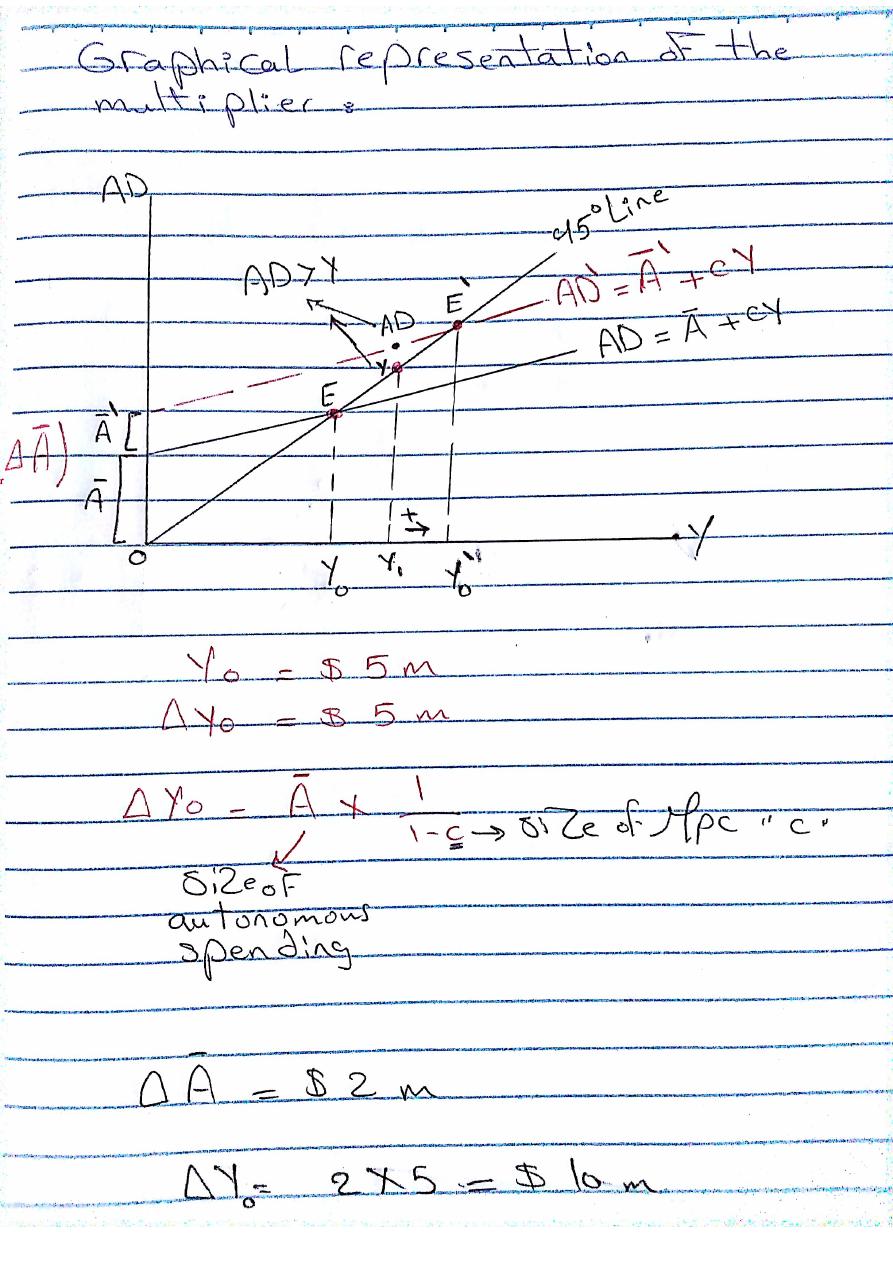 Graphical representation of the
multiplier:
AD
45° Line
AD > Y
E`
AD` = Ā` + cY
AD
AD = Ā + cY
Y
E
Ā`
ΔĀ)
Ā
+
→
O
Y₀
Y₁
Y₀``
Y
Y₀ = $ 5 m
ΔY₀ = $ 5 m
ΔY₀ = Ā × 1/(1-c) → size of Mpc "c"
size of
autonomous
spending
ΔĀ = $ 2 m
ΔY₀ = 2 × 5 = $ 10 m